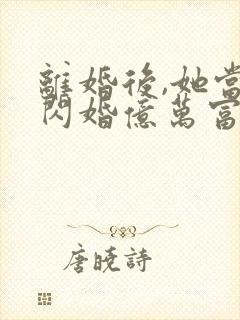 離婚後,她當
閃婚億萬富
唐曉詩